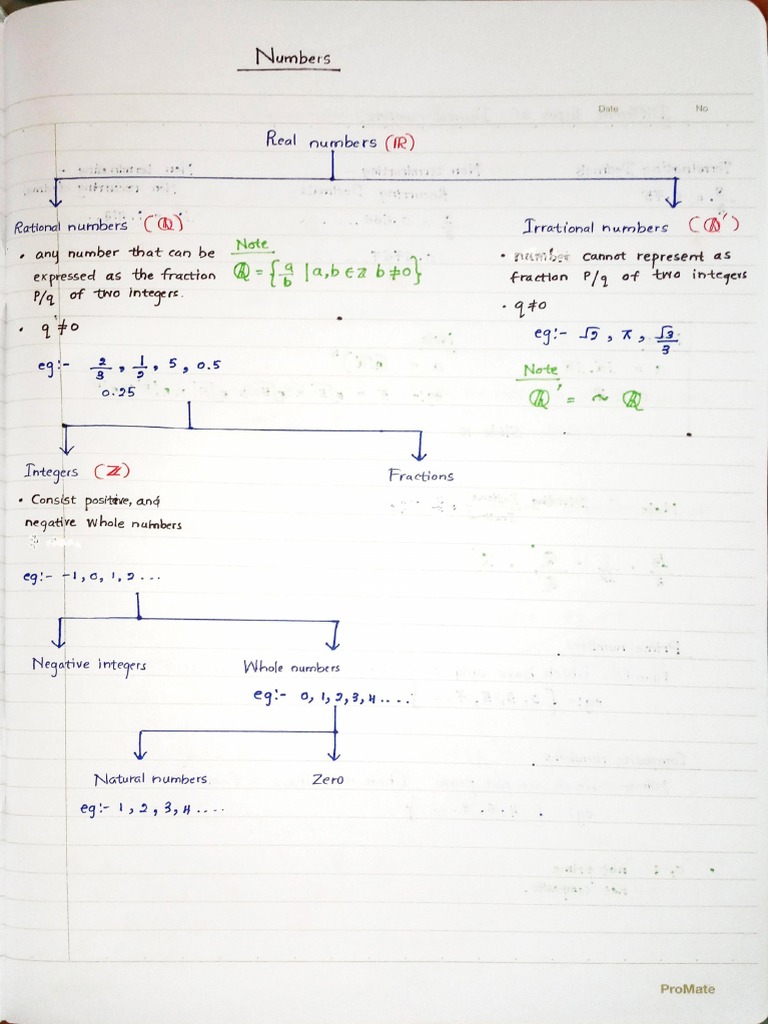 Numbers
Date No
Real numbers (ℝ)
Rational numbers (ℚ)
• any number that can be
expressed as the fraction
P/q of two integers.
• q ≠ 0
eg:- 2/3, 1/2, 5, 0.5
0.25
Note
ℚ = {a/b | a, b ∈ ℤ b ≠ 0}
Irrational numbers (ℚ')
• number cannot represent as
fraction P/q of two integers
• q ≠ 0
eg:- √2, π, √3/3
Note
ℚ' = ~ ℚ
Integers (ℤ)
• Consist positive, and
negative whole numbers
eg:- -1, 0, 1, 2 ...
Fractions
Negative integers
Whole numbers
eg:- 0, 1, 2, 3, 4 ....
Natural numbers
eg:- 1, 2, 3, 4 ....
Zero
ProMate